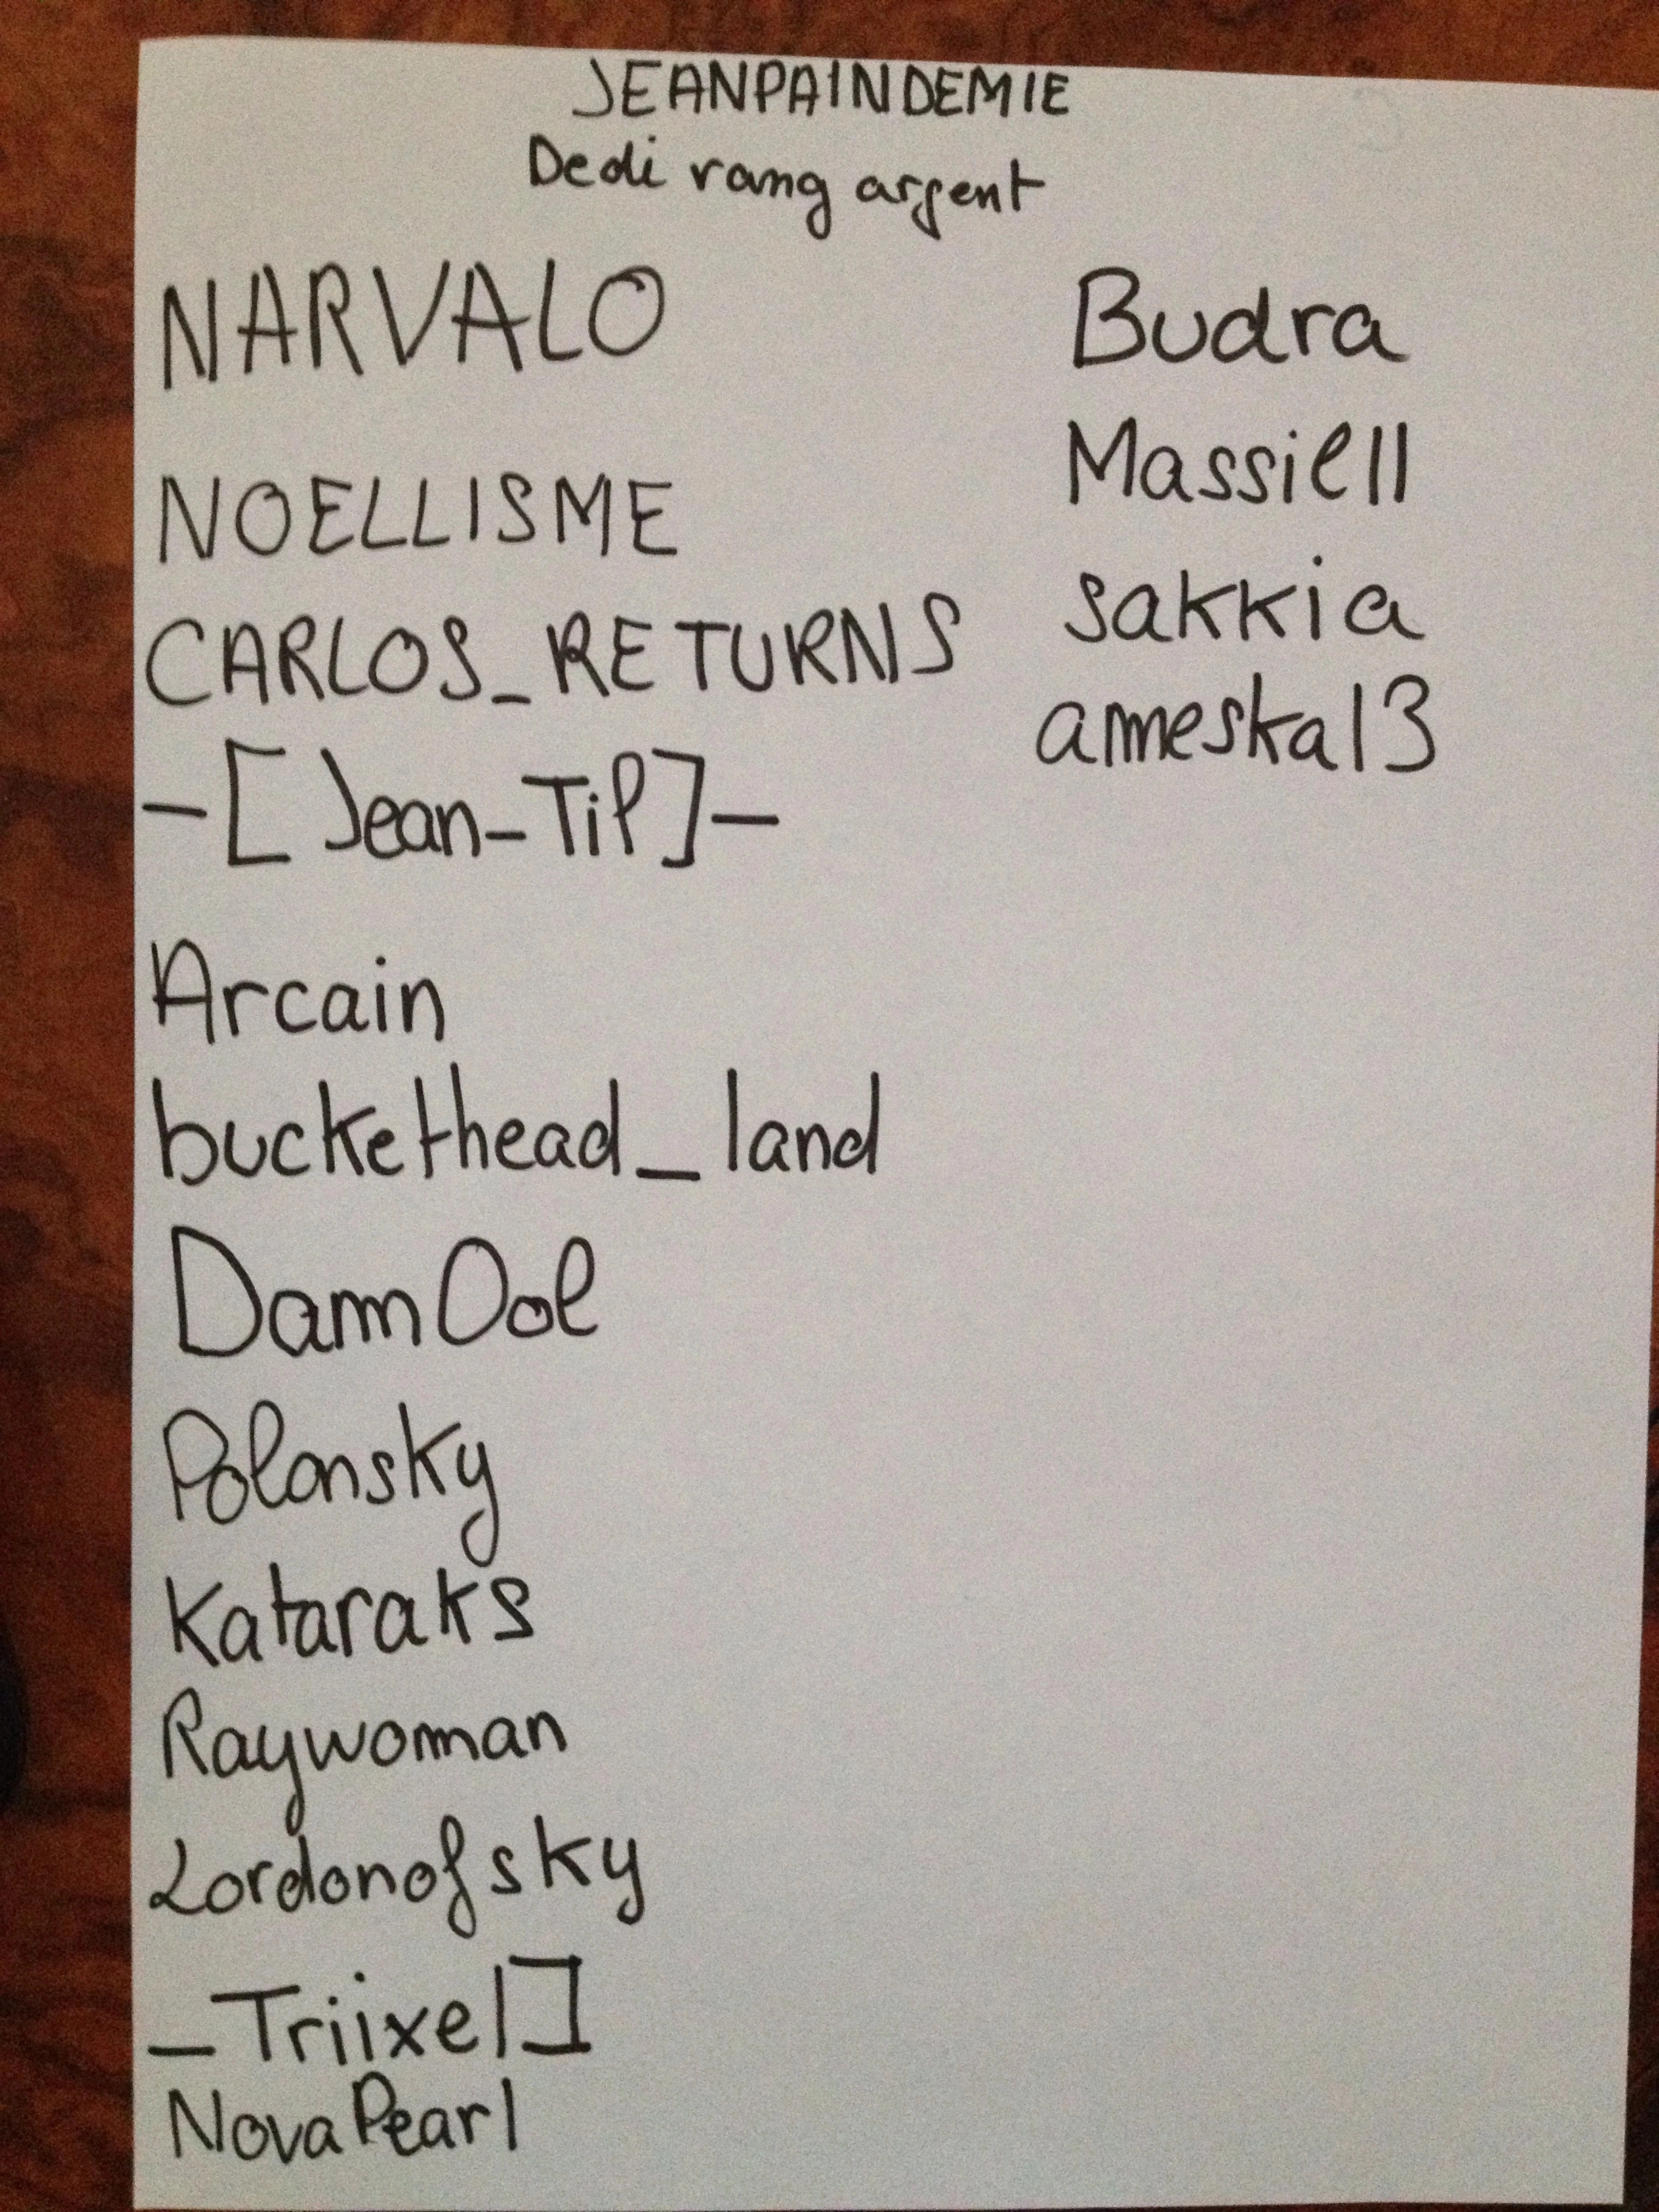 JEANPAINDEMIE
Dedi rang argent
NARVALO
NOELLISME
CARLOS_RETURNS
-[Jean-Til]-
Arcain
buckethead_land
DamnOol
Polonsky
Kataraks
Raywoman
Lordonofsky
_Triixel]
NovaPearl
Budra
Massiell
sakkia
ameska13